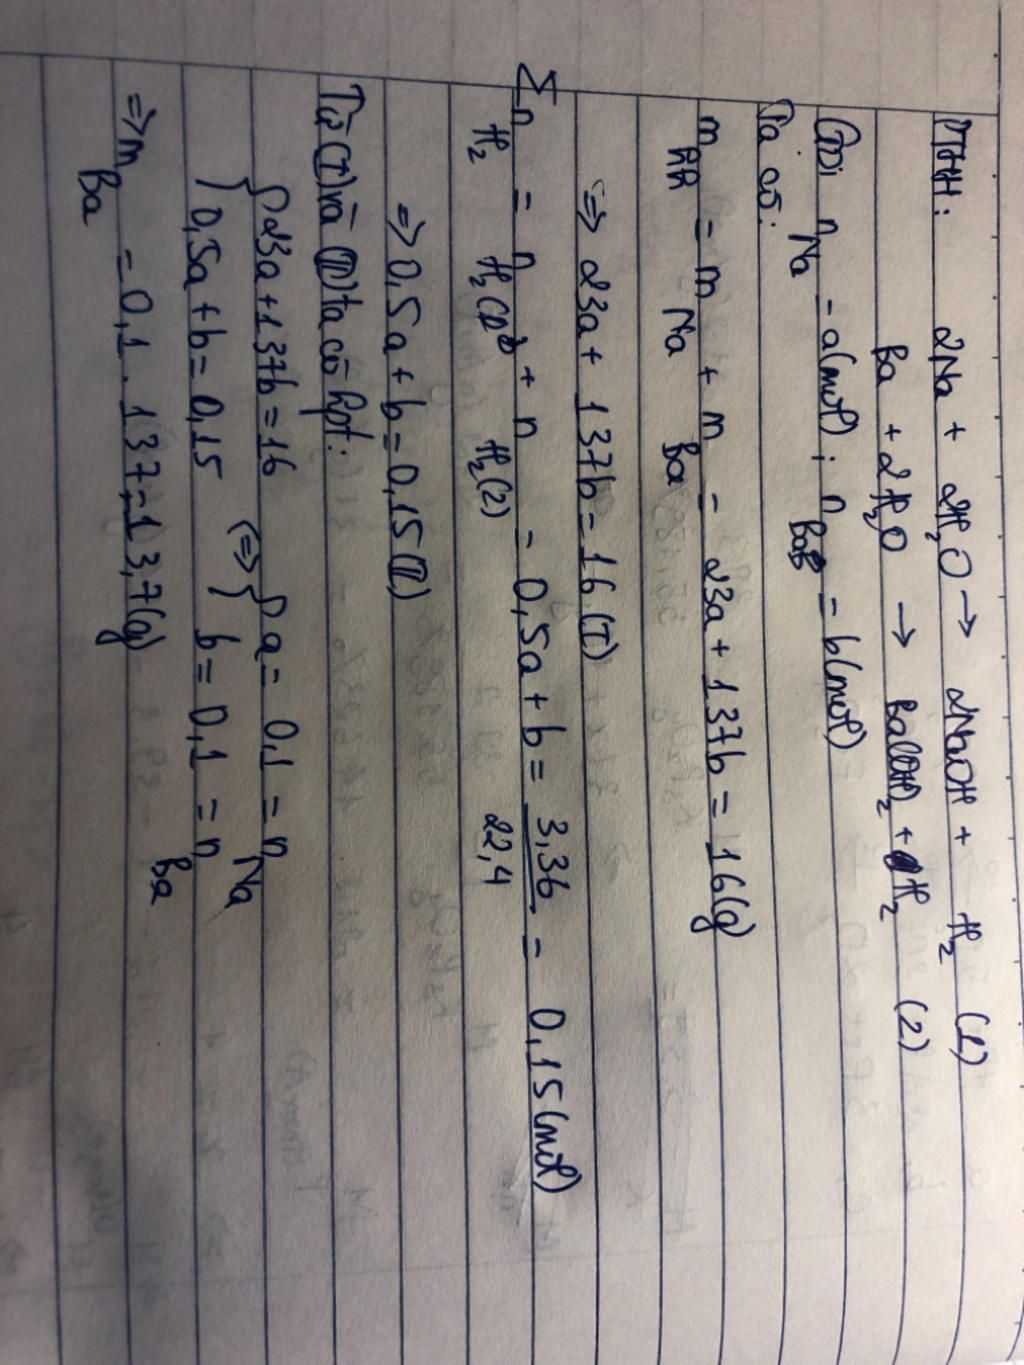 PTHH: 2Na + 2H₂O → 2NaOH + H₂ (1)
Ba + 2H₂O → Ba(OH)₂ + H₂ (2)
Gọi n_Na = a(mol) ; n_Ba = b(mol)
Ta có:
m_hh = m_Na + m_Ba = 23a + 137b = 16(g)
=> 23a + 137b = 16 (I)
Σn_H₂ = n_H₂(1) + n_H₂(2) = 0,5a + b = 3,36/22,4 = 0,15(mol)
=> 0,5a + b = 0,15 (II)
Từ (I) và (II) ta có hpt:
{ 23a + 137b = 16 <=> { a = 0,1 = n_Na
{ 0,5a + b = 0,15 { b = 0,1 = n_Ba
=> m_Ba = 0,1 . 137 = 13,7(g)